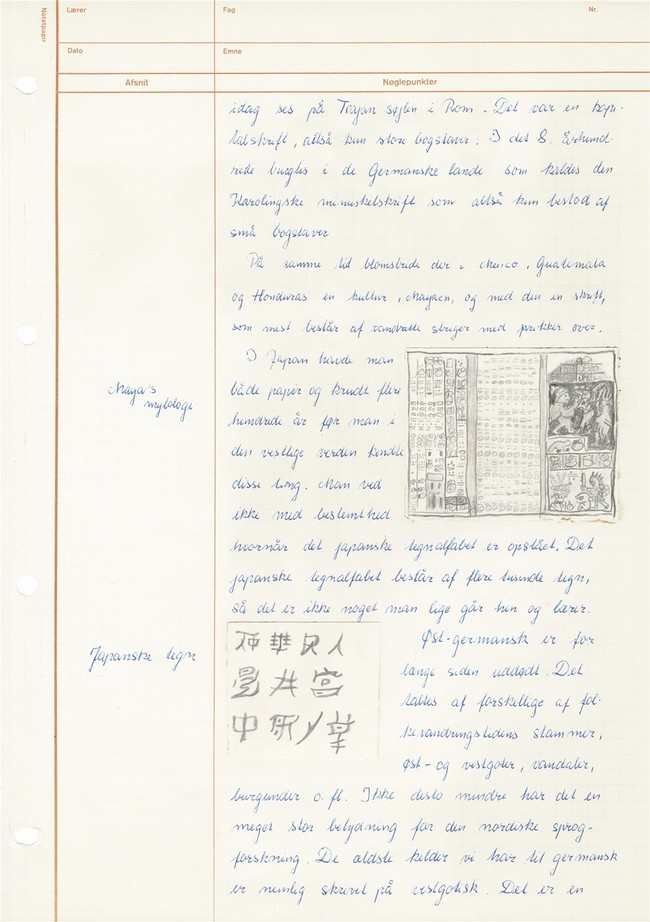 Notatpapir
Lærer
Fag
Nr.
Dato
Emne
Afsnit
Nøglepunkter
idag ses på Trajan søjlen i Rom. Det var en kapi-
talskrift, altså kun store bogstaver. I det 8. århund-
rede brugtes i de Germanske lande som kaldes den
Karolingske minuskelskrift som altså kun bestod af
små bogstaver
På samme tid blomstrede der i Mexico, Guatemala
og Honduras en kultur, Mayaen, og med den en skrift,
som mest består af vandrette streger med prikker over.
Maya's
mytologi
I Japan havde man
både papir og krudt flere
hundrede år før man i
den vestlige verden kendte
disse ting. Man ved
ikke med bestemthed
hvornår det japanske tegnalfabet er opstået. Det
japanske tegnalfabet består af flere tusinde tegn,
så det er ikke noget man lige går hen og lærer.
Japanske tegn
人
井 宮
中
Øst-germansk er for
længe siden uddødt. Det
taltes af forskellige af fol-
kevandringstidens stammer,
øst- og vestgoter, vandaler,
burgunder o. fl. Ikke desto mindre har det en
meget stor betydning for den nordiske sprog-
forskning. De ældste kilder vi har til germansk
er nemlig skrevet på vestgotisk. Det er en